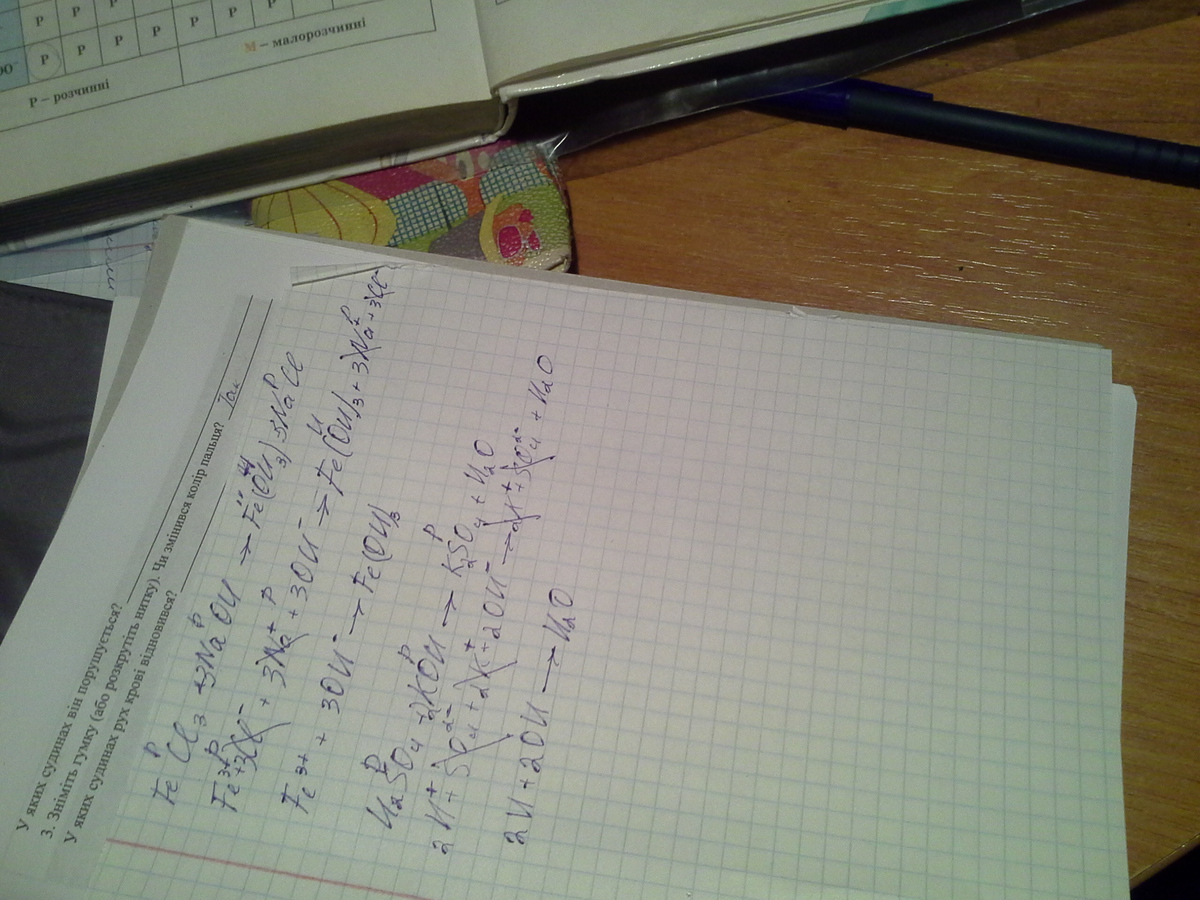 Р Р Р Р Р Р Р
Р Р Р Р Р Р
М – малорозчинні
Р – розчинні
У яких судинах він порушується?
3. Зніміть гумку (або розкрутіть нитку). Чи змінився колір пальця? Так
У яких судинах рух крові відновився?
FeCl₃ + 3NaOH → Fe(OH)₃ 3NaCl
Fe³⁺ + 3Cl⁻ + 3Na⁺ + 3OH⁻ → Fe(OH)₃ + 3Na⁺ + 3Cl⁻
Fe³⁺ + 3OH⁻ → Fe(OH)₃
H₂SO₄ + 2KOH → K₂SO₄ + H₂O
2H⁺ + SO₄²⁻ + 2K⁺ + 2OH⁻ → 2K⁺ + SO₄²⁻ + H₂O
2H + 2OH → H₂O